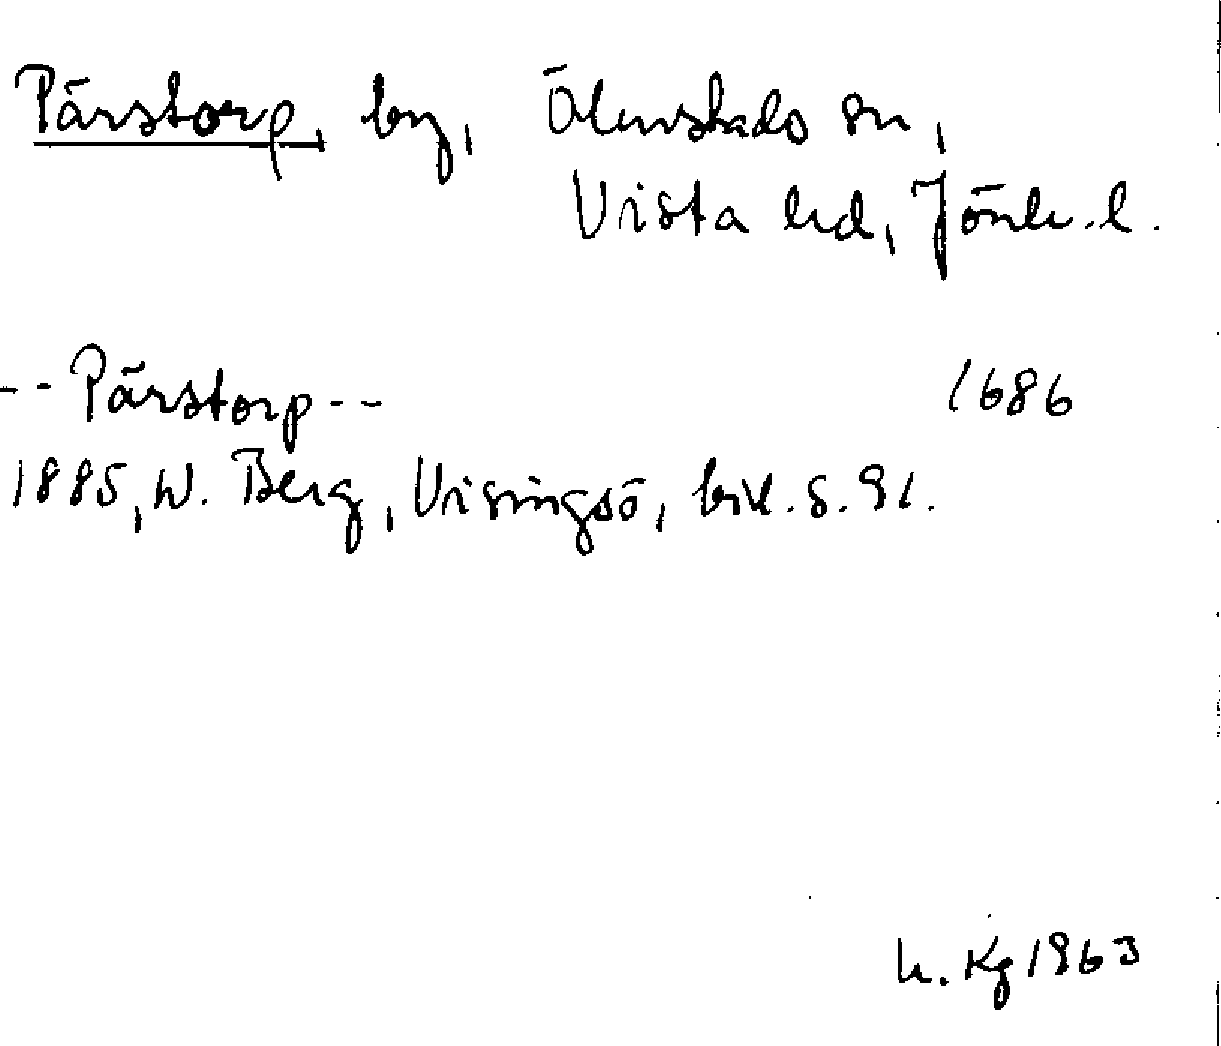 Pärstorp, by, Ölmstads sn,
Vista hd, Jönk.l.
-- Pärstorp -- 1686
1885, W. Berg, Visingsö, bil. s. 91.
h. Kg 1963